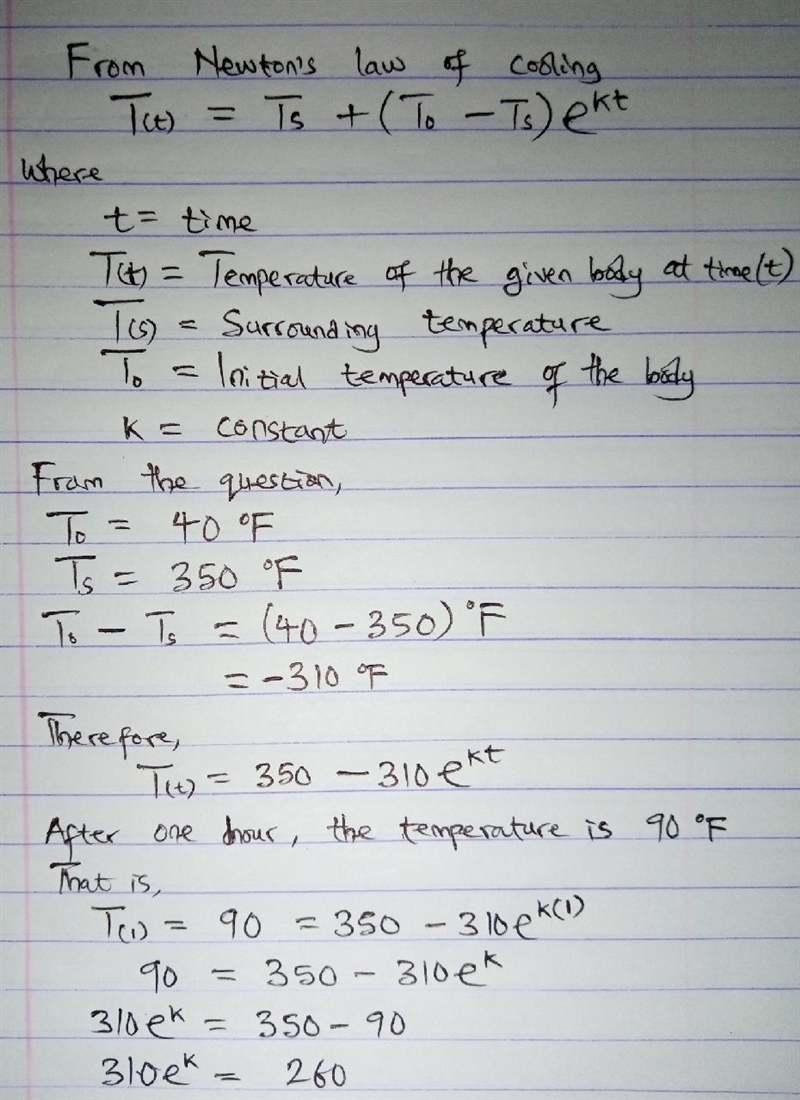 From Newton's law of cooling
T(t) = Ts + (To - Ts)e^kt
Where
t = time
T(t) = Temperature of the given body at time(t)
T(s) = Surrounding temperature
To = Initial temperature of the body
K = constant
From the question,
To = 40 °F
Ts = 350 °F
To - Ts = (40 - 350) °F
= -310 °F
Therefore,
T(t) = 350 - 310e^kt
After one hour, the temperature is 90 °F
That is,
T(1) = 90 = 350 - 310e^k(1)
90 = 350 - 310e^k
310e^k = 350 - 90
310e^k = 260